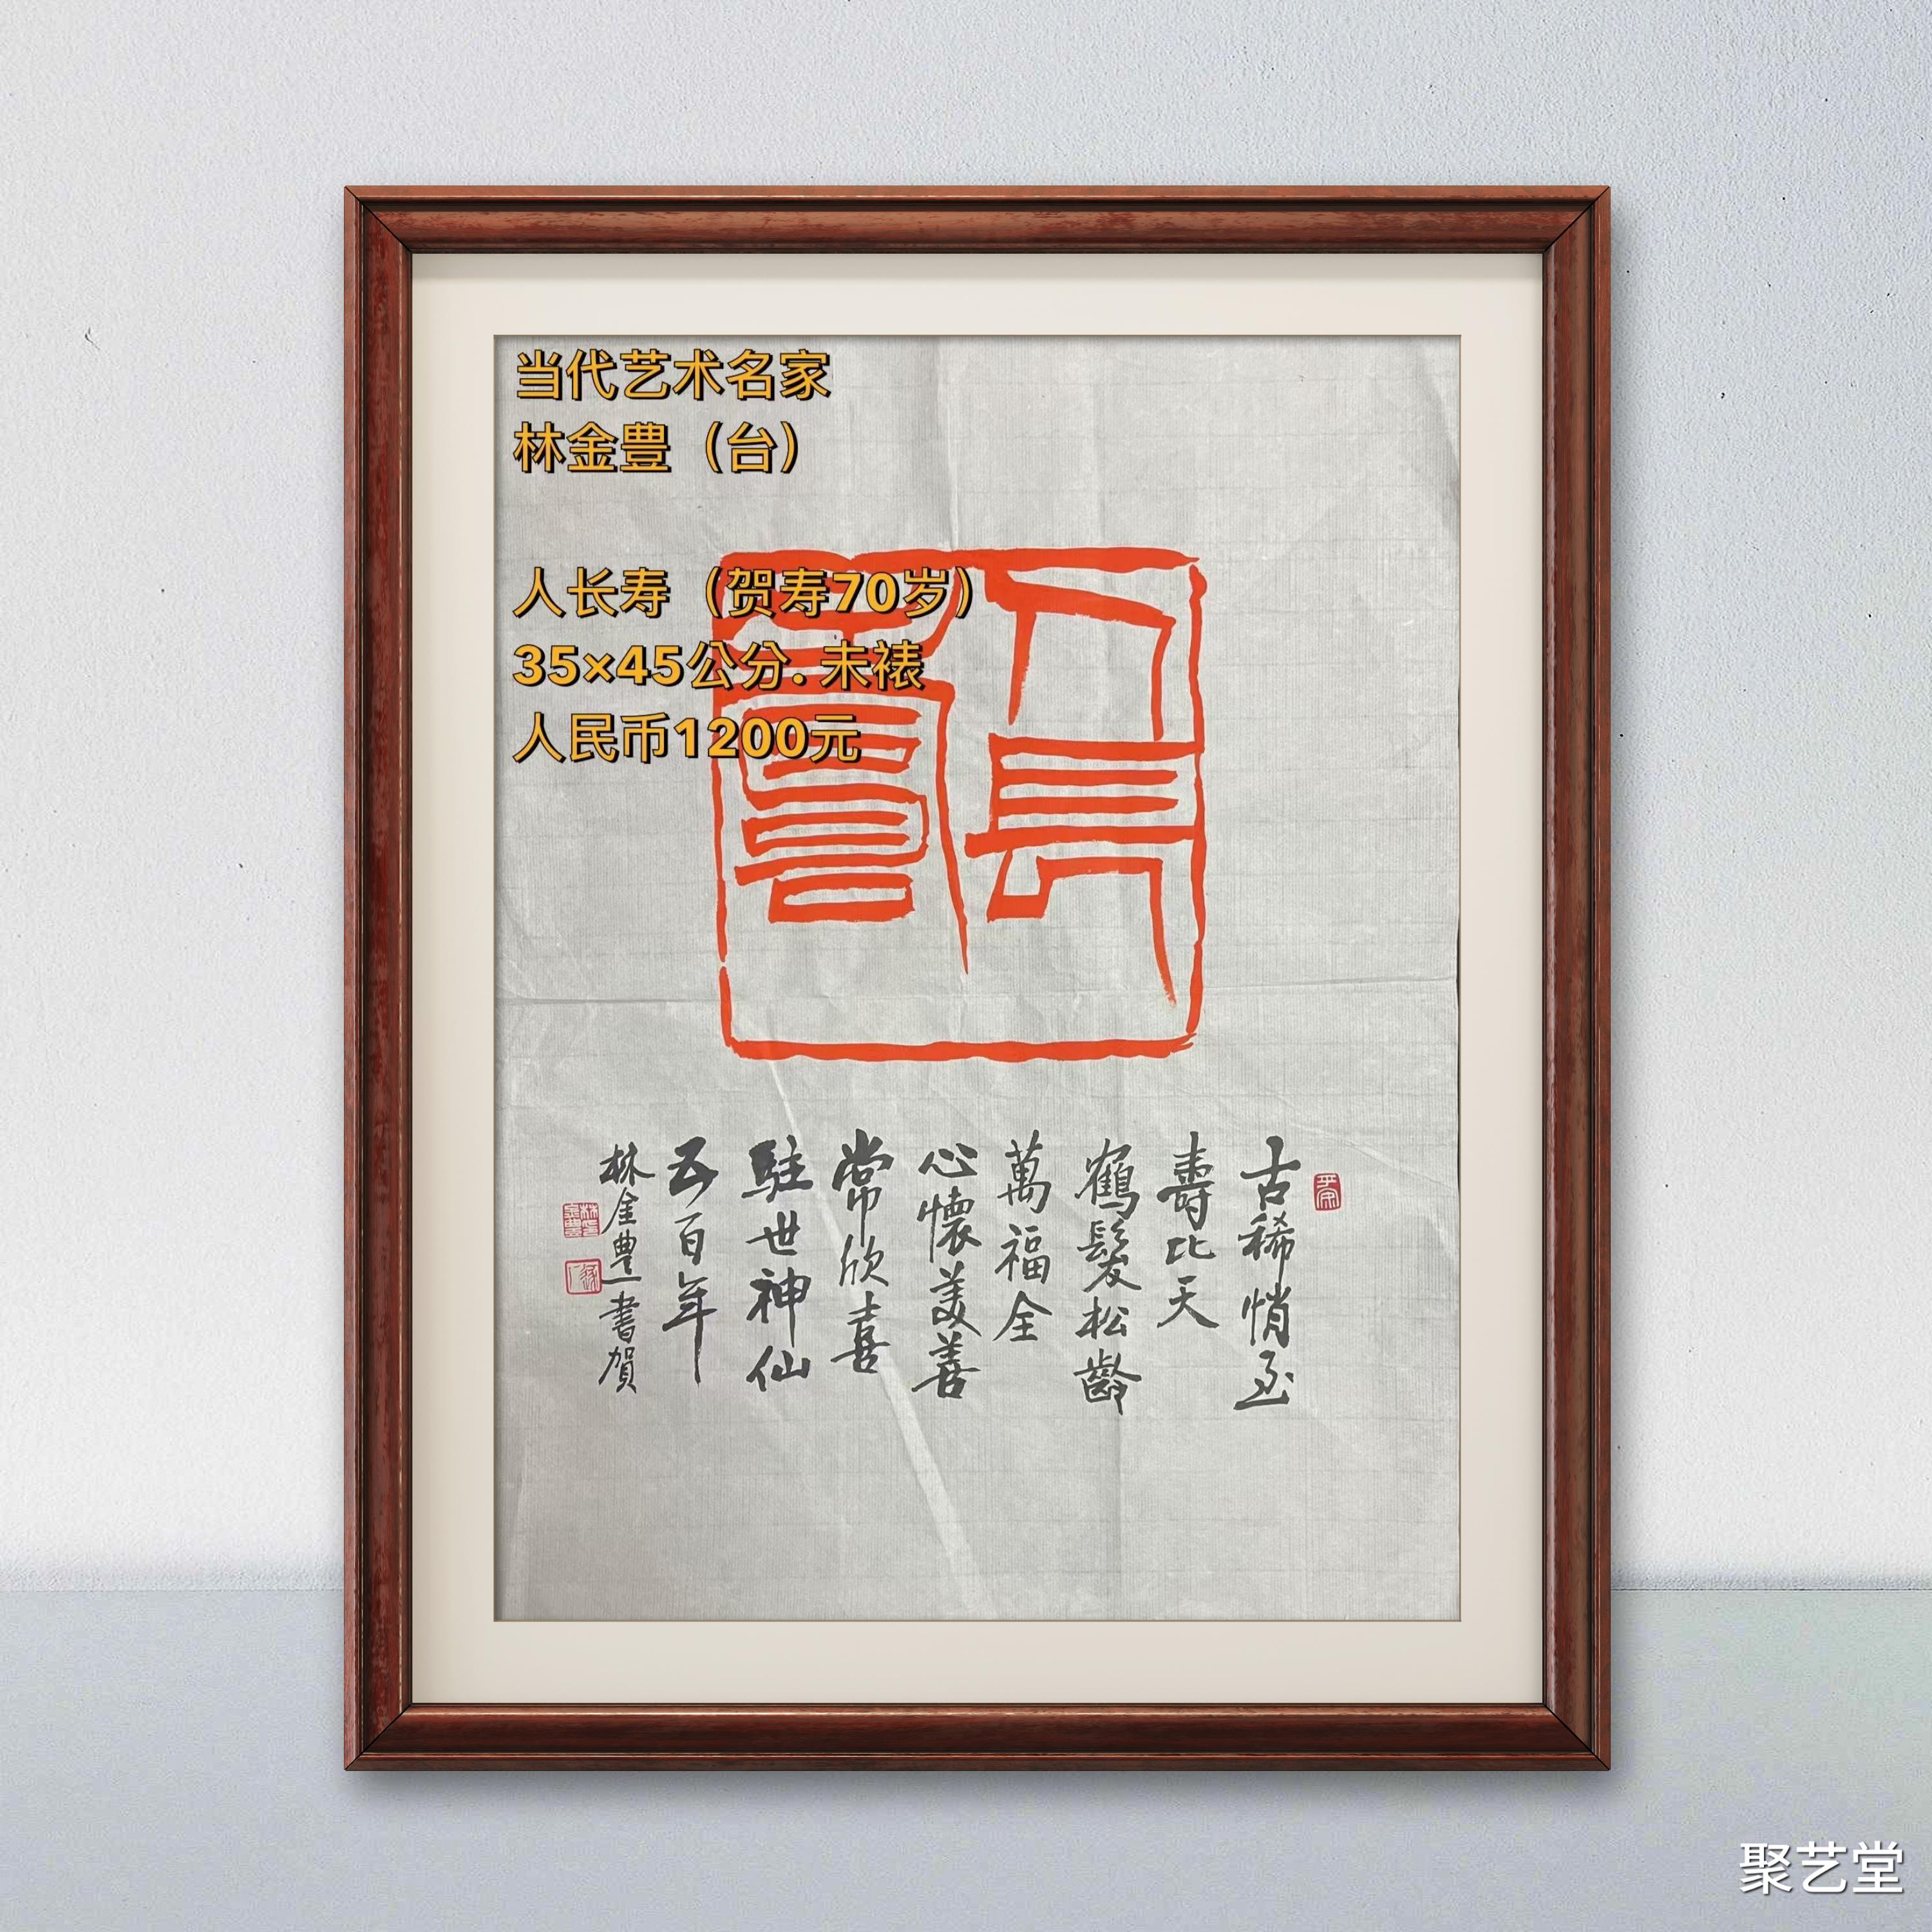 当代艺术名家
林金豊（台）
人长寿（贺寿70岁）
35×45公分.未裱
人民币1200元
人長壽
古稀悄至
壽比天
鶴髮松齡
萬福全
心懷美善
常欣喜
駐世神仙
五百年
林金豊書賀
聚艺堂